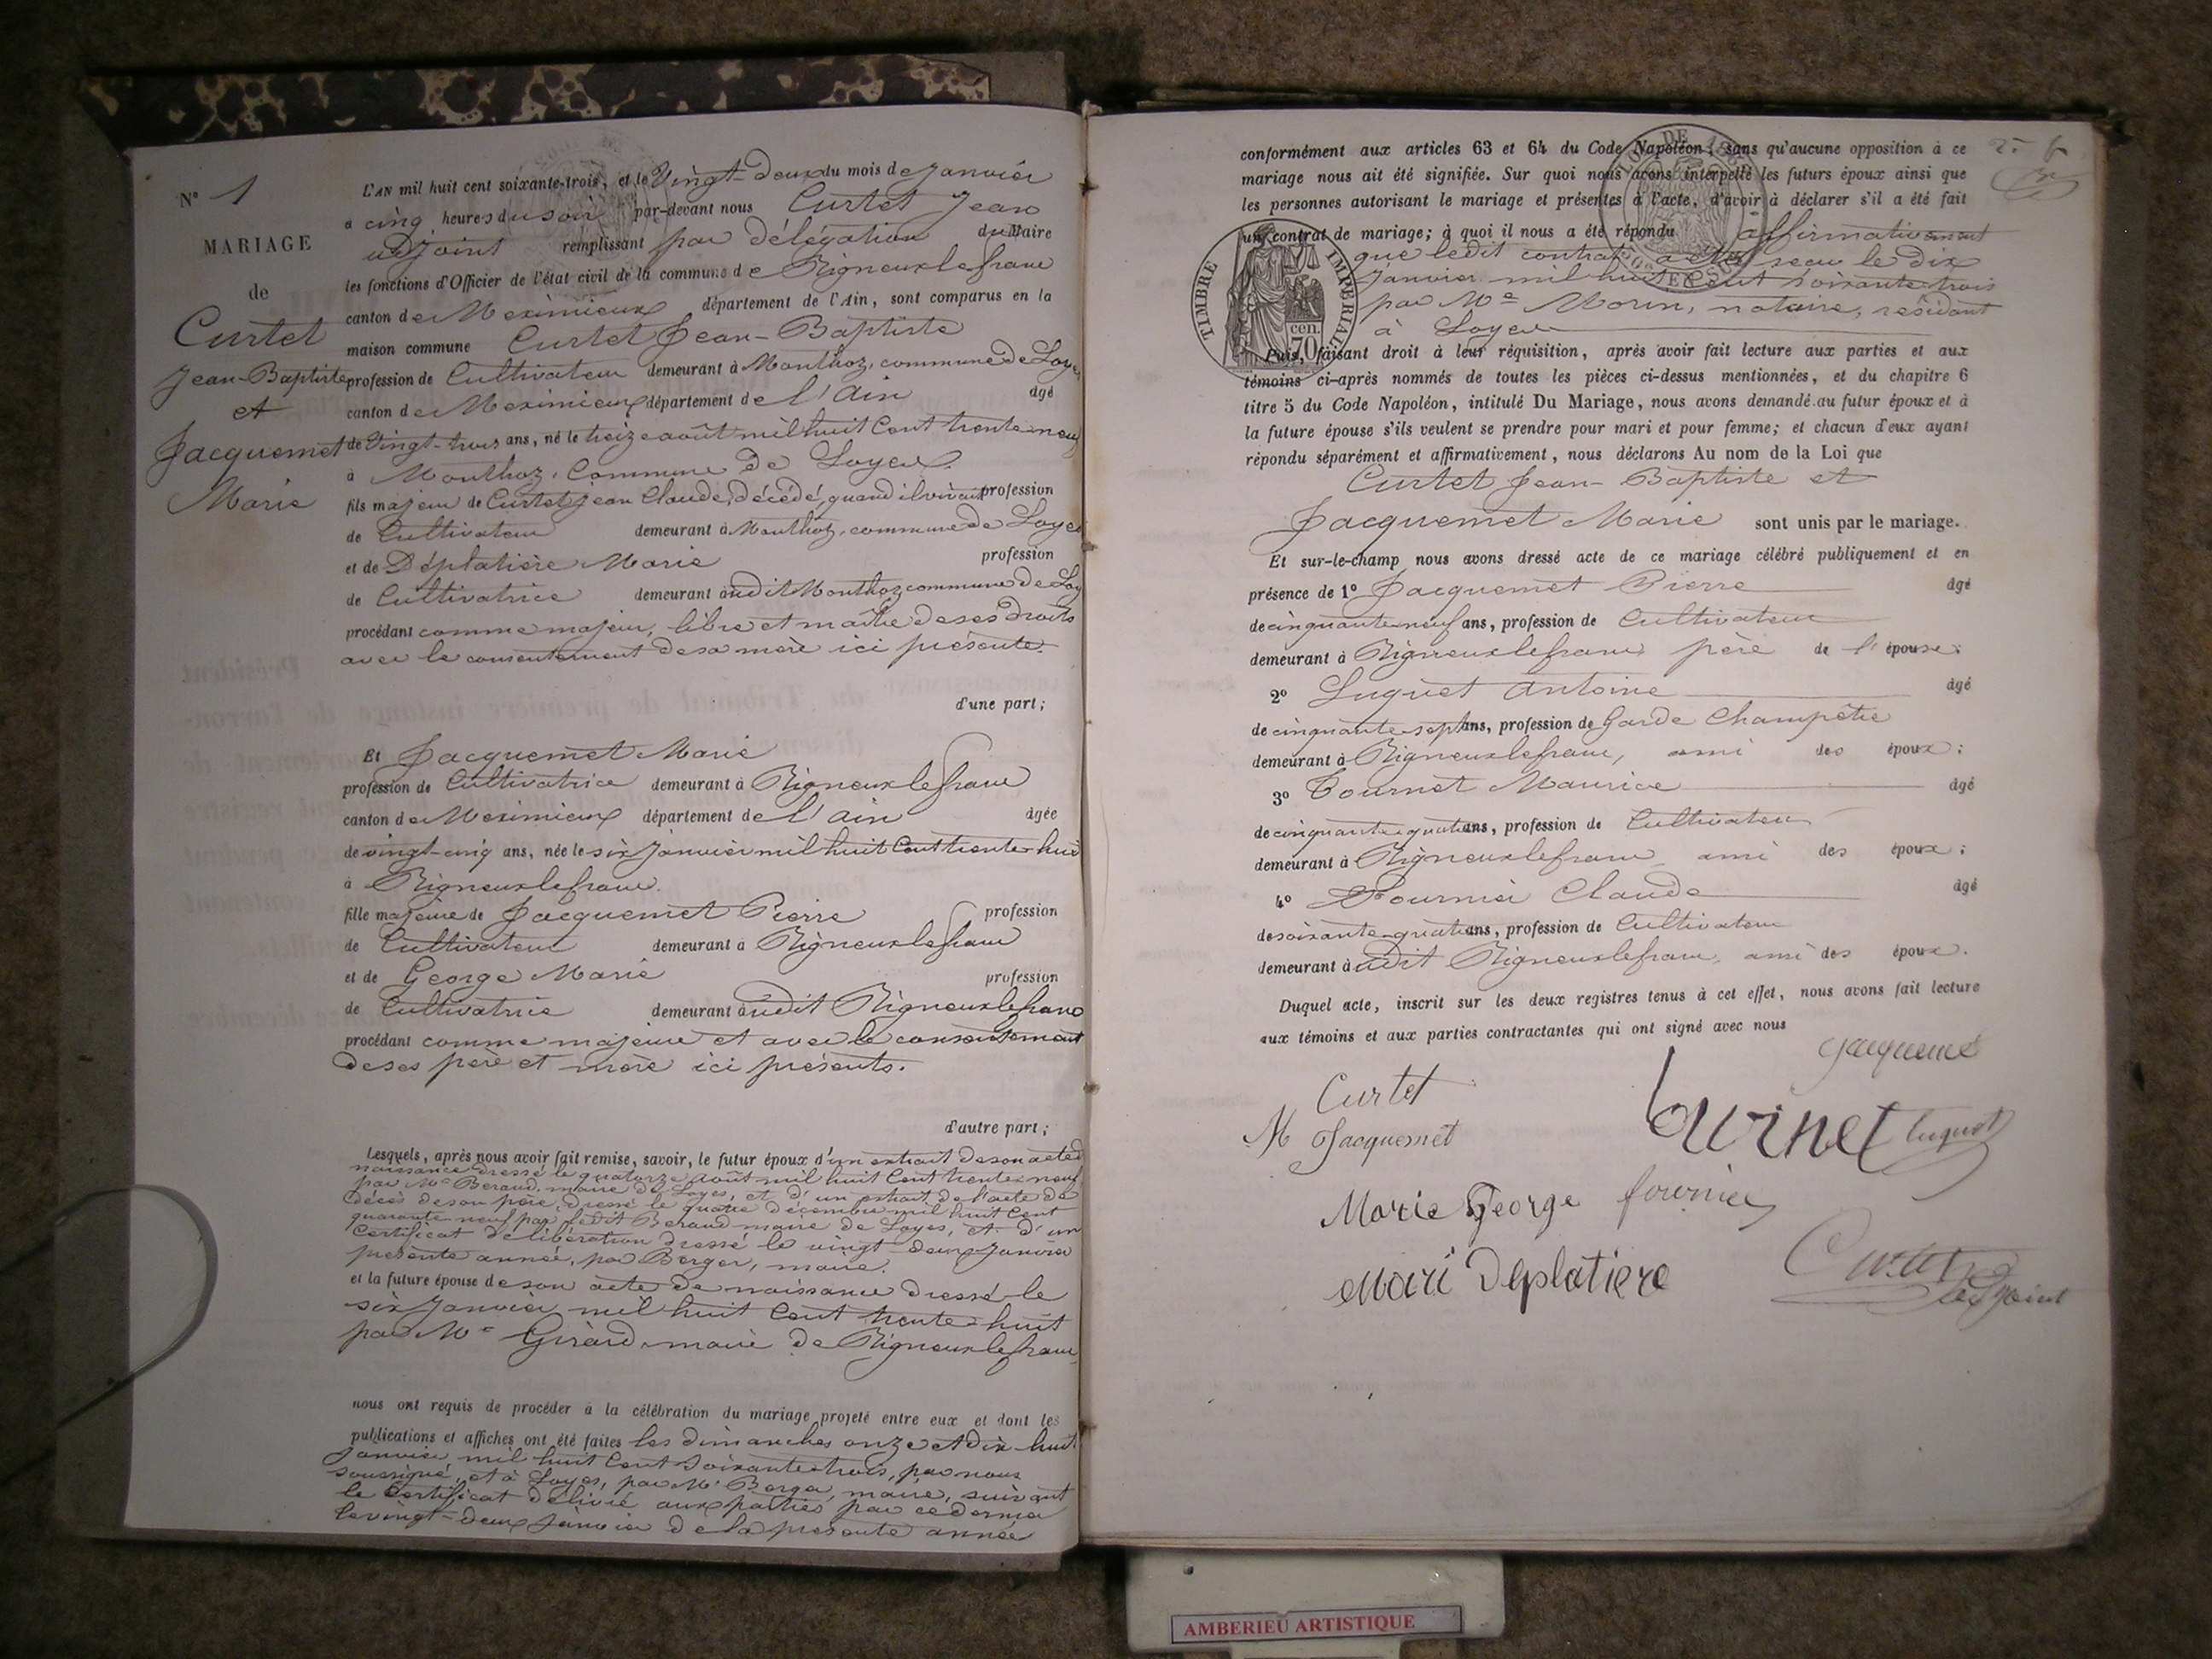 N° 1
MARIAGE
de
Curtet
Jean-Baptiste
et
Jacquemet
Marie
L'AN mil huit cent soixante-trois, et le Vingt-deux du mois de Janvier
à cinq heures du soir par-devant nous Curtet Jean
adjoint remplissant par délégation du Maire
les fonctions d'Officier de l'état civil de la commune de Rigneuxlefranc
canton de Meximieux département de l'Ain, sont comparus en la
maison commune Curtet Jean-Baptiste
profession de Cultivateur demeurant à Monthoz, commune de Loyes
canton de Meximieux département de l'Ain âgé
de Vingt-trois ans, né le treize août mil huit Cent trente neuf
à Monthoz, Commune de Loyes.
fils majeur de Curtet Jean Claude, décédé, quand il vivait profession
de Cultivateur demeurant à Monthoz, commune de Loyes
et de Déplatière Marie profession
de Cultivatrice demeurant audit Monthoz commune de Loy
procédant comme majeur, libre et maître de ses droits
avec le consentement de sa mère ici présente.
d'une part;
Et Jacquemet Marie
profession de Cultivatrice demeurant à Rigneuxlefranc
canton de Meximieux département de l'Ain âgée
de vingt-cinq ans, née le six Janvier mil huit Cent trente-huit
à Rigneuxlefranc.
fille majeure de Jacquemet Pierre profession
de Cultivateur demeurant à Rigneuxlefranc
et de George Marie profession
de Cultivatrice demeurant audit Rigneuxlefranc
procédant comme majeure et avec le consentement
de ses père et mère ici présents.
d'autre part;
Lesquels, après nous avoir fait remise, savoir, le futur époux d'un extrait de son acte d
naissance dressé le quatorze août mil huit Cent trente neuf
par Mr Beraud, maire de Loyes, et d'un extrait de l'acte de
décès de son père, dressé le quatre décembre mil huit Cent
quarante neuf par ledit Beraud maire de Loyes, et d'un
Certificat de libération dressé le vingt-deux Janvier
présente année, par Berger, maire.
et la future épouse de son acte de naissance dressé le
six Janvier mil huit Cent trente-huit
par Mr Girard, maire de Rigneuxlefranc
nous ont requis de procéder à la célébration du mariage projeté entre eux et dont les
publications et affiches ont été faites les dimanches onze et dix-huit
Janvier mil huit Cent soixante trois, par nous
soussigné, et à Loyes, par Mr Berger, maire, suivant
le Certificat délivré aux parties par ce dernier
le vingt-deux Janvier de la présente année
conformément aux articles 63 et 64 du Code Napoléon, sans qu'aucune opposition à ce
mariage nous ait été signifiée. Sur quoi nous avons interpellé les futurs époux ainsi que
les personnes autorisant le mariage et présentes à l'acte, d'avoir à déclarer s'il a été fait
un contrat de mariage; à quoi il nous a été répondu affirmativement
que ledit contrat a été reçu le dix
Janvier mil huit Cent soixante trois
par Me Morin, notaire, résidant
à Loyes
TIMBRE IMPERIAL
70 cen.
Puis, faisant droit à leur réquisition, après avoir fait lecture aux parties et aux
témoins ci-après nommés de toutes les pièces ci-dessus mentionnées, et du chapitre 6
titre 5 du Code Napoléon, intitulé Du Mariage, nous avons demandé au futur époux et à
la future épouse s'ils veulent se prendre pour mari et pour femme; et chacun d'eux ayant
répondu séparément et affirmativement, nous déclarons Au nom de la Loi que
Curtet Jean-Baptiste et
Jacquemet Marie sont unis par le mariage.
Et sur-le-champ nous avons dressé acte de ce mariage célébré publiquement et en
présence de 1° Jacquemet Pierre âgé
de cinquante neuf ans, profession de Cultivateur
demeurant à Rigneuxlefranc père de l'épouse;
2° Luquet Antoine âgé
de cinquante-sept ans, profession de Garde Champêtre
demeurant à Rigneuxlefranc, ami des époux;
3° Tournet Maurice âgé
de cinquante-quatre ans, profession de Cultivateur
demeurant à Rigneuxlefranc ami des époux;
4° Fournier Claude âgé
de soixante-quatre ans, profession de Cultivateur
demeurant audit Rigneuxlefranc, ami des époux.
Duquel acte, inscrit sur les deux registres tenus à cet effet, nous avons fait lecture
aux témoins et aux parties contractantes qui ont signé avec nous
Jacquemet
Curtet
M Jacquemet
Luquet
Marie George fournier
Mari Deplatiere
Curtet
adjoint
AMBERIEU ARTISTIQUE